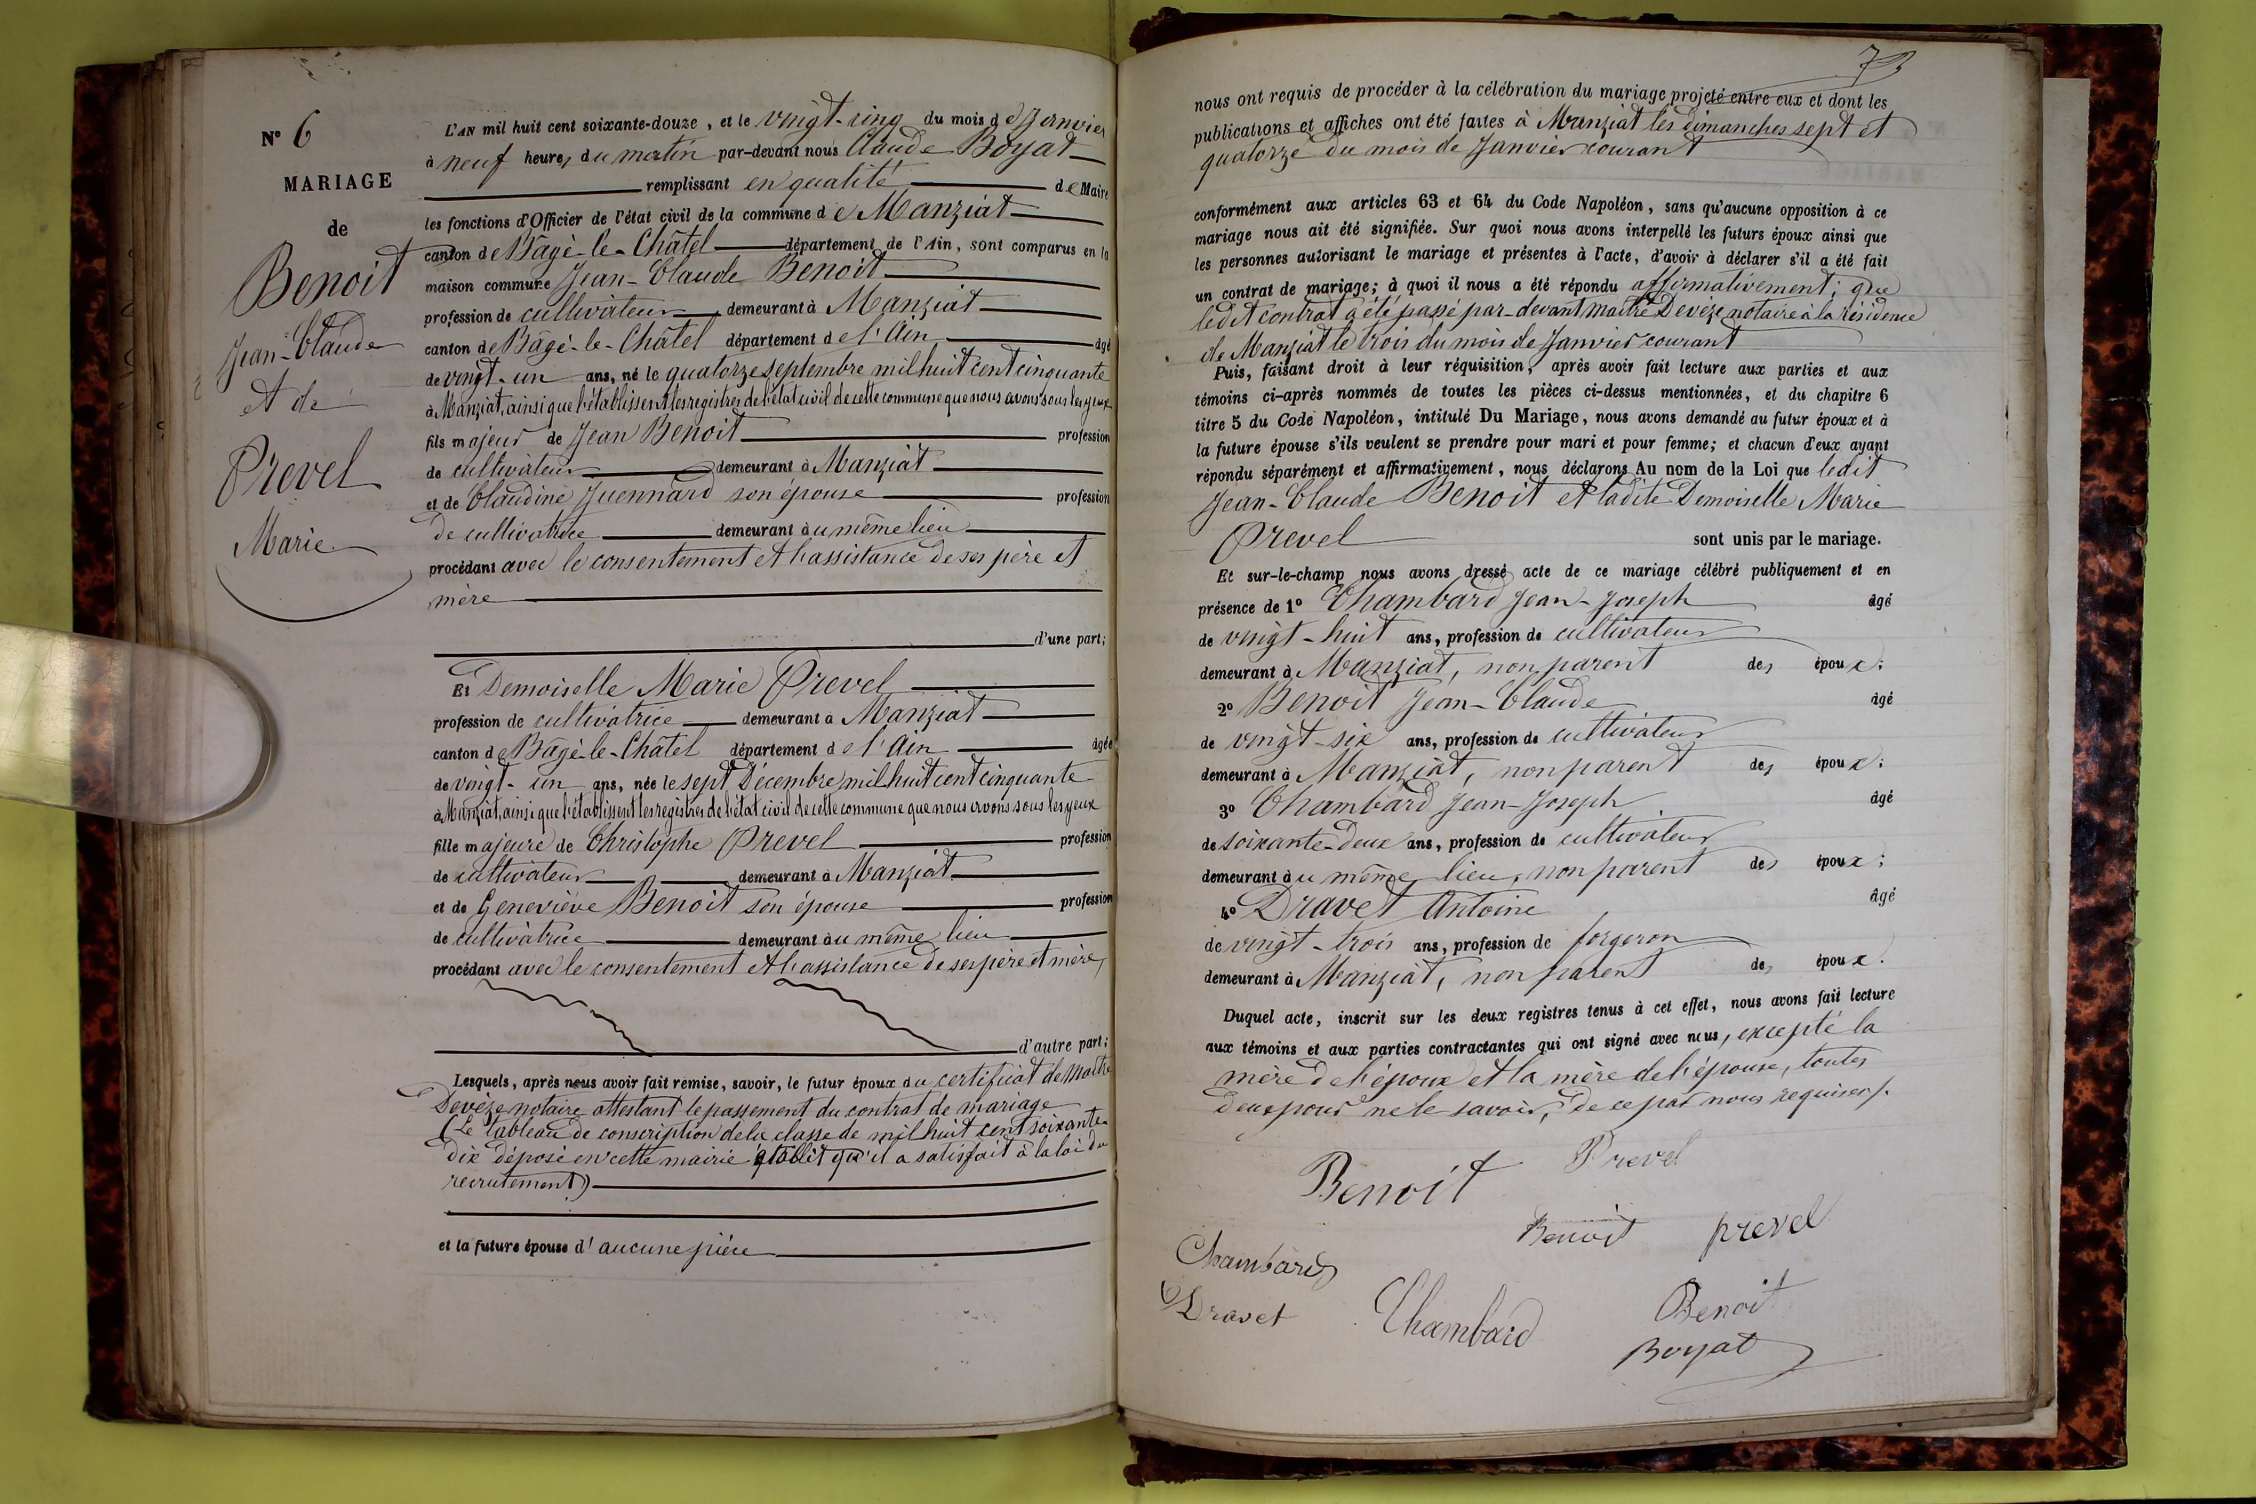 N° 6
MARIAGE
de
Benoit
Jean-Claude
et de
Prevel
Marie
L'AN mil huit cent soixante-douze, et le vingt-cinq du mois de Janvier
à neuf heures du matin par-devant nous Claude Boyat
remplissant en qualité de Maire
les fonctions d'Officier de l'état civil de la commune de Manziat
canton de Bâgé-le-Châtel département de l'Ain, sont comparus en la
maison commune Jean-Claude Benoit
profession de cultivateur demeurant à Manziat
canton de Bâgé-le-Châtel département de l'Ain âgé
de vingt-un ans, né le quatorze septembre mil huit cent cinquante
à Manziat, ainsi que l'établissent les registres de l'état civil de cette commune que nous avons sous les yeux
fils majeur de Jean Benoit profession
de cultivateur demeurant à Manziat
et de Claudine Juennard son épouse profession
de cultivatrice demeurant au même lieu
procédant avec le consentement et l'assistance de ses père et
mère
d'une part;
Et Demoiselle Marie Prevel
profession de cultivatrice demeurant à Manziat
canton de Bâgé-le-Châtel département de l'Ain âgée
de vingt-un ans, née le sept Décembre mil huit cent cinquante
à Manziat, ainsi que l'établissent les registres de l'état civil de cette commune que nous avons sous les yeux
fille majeure de Christophe Prevel profession
de cultivateur demeurant à Manziat
et de Geneviève Benoit son épouse profession
de cultivatrice demeurant au même lieu
procédant avec le consentement et l'assistance de ses père et mère,
d'autre part;
Lesquels, après nous avoir fait remise, savoir, le futur époux du certificat de Maître
Devèze notaire attestant le passement du contrat de mariage
(Le tableau de conscription de la classe de mil huit cent soixante-
dix déposé en cette mairie établit qu'il a satisfait à la loi du
recrutement)
et la future épouse d'aucune pièce
73
nous ont requis de procéder à la célébration du mariage projeté entre eux et dont les
publications et affiches ont été faites à Manziat les dimanches sept et
quatorze du mois de Janvier courant
conformément aux articles 63 et 64 du Code Napoléon, sans qu'aucune opposition à ce
mariage nous ait été signifiée. Sur quoi nous avons interpellé les futurs époux ainsi que
les personnes autorisant le mariage et présentes à l'acte, d'avoir à déclarer s'il a été fait
un contrat de mariage; à quoi il nous a été répondu affirmativement; que
ledit contrat a été passé par-devant maître Devèze notaire à la résidence
de Manziat le trois du mois de Janvier courant
Puis, faisant droit à leur réquisition, après avoir fait lecture aux parties et aux
témoins ci-après nommés de toutes les pièces ci-dessus mentionnées, et du chapitre 6
titre 5 du Code Napoléon, intitulé Du Mariage, nous avons demandé au futur époux et à
la future épouse s'ils veulent se prendre pour mari et pour femme; et chacun d'eux ayant
répondu séparément et affirmativement, nous déclarons Au nom de la Loi que ledit
Jean-Claude Benoit et ladite Demoiselle Marie
Prevel sont unis par le mariage.
Et sur-le-champ nous avons dressé acte de ce mariage célébré publiquement et en
présence de 1° Chambard Jean-Joseph âgé
de vingt-huit ans, profession de cultivateur
demeurant à Manziat, non parent des époux;
2° Benoit Jean-Claude âgé
de vingt-six ans, profession de cultivateur
demeurant à Manziat, non parent des époux;
3° Chambard Jean-Joseph âgé
de soixante-deux ans, profession de cultivateur
demeurant au même lieu, non parent des époux;
4° Dravet Antoine âgé
de vingt-trois ans, profession de forgeron
demeurant à Manziat, non parent des époux.
Duquel acte, inscrit sur les deux registres tenus à cet effet, nous avons fait lecture
aux témoins et aux parties contractantes qui ont signé avec nous, excepté la
mère de l'époux et la mère de l'épouse, toutes
deux pour ne le savoir, de ce par nous requises.
Benoit Prevel
Benoit prevel
Chambard
Dravet Chambard Benoit
Boyat